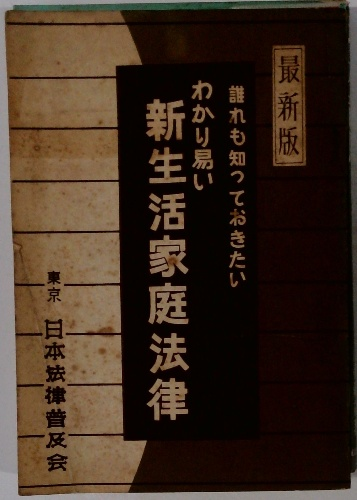 最新版
誰れも知っておきたい
わかり易い
新生活家庭法律
東京
日本法律普及会